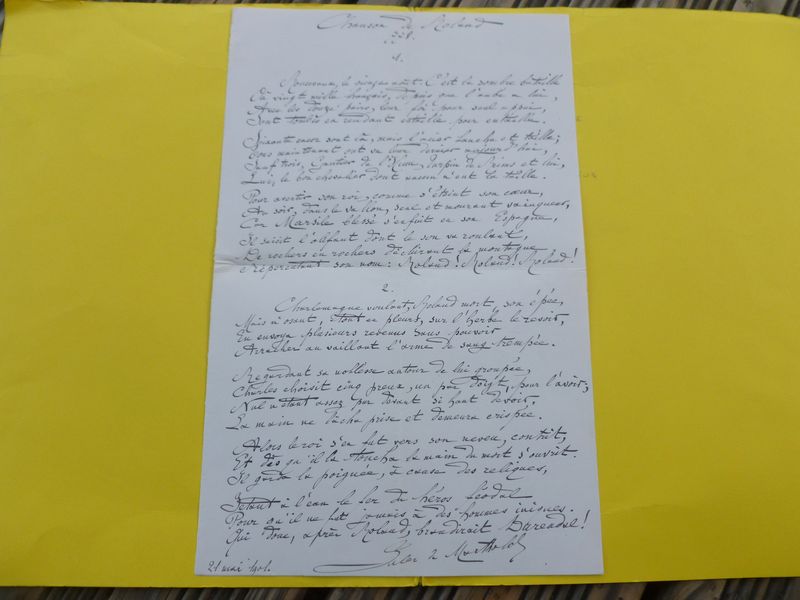 Chanson de Roland
778.
1.
Roncevaux, le visage noir. C'est la sombre bataille
Où vingt mille français, depuis que l'aube a lui,
Avec les douze pairs, leur foi pour seul appui,
Sont tombés en rendant entaille pour entaille.
Soixante encor sont là, mais l'acier tranche et taille;
Tous maintenant ont vu leur dernier aujourd'hui,
Sauf trois, Gautier de l'Hum, Turpin de Reims et lui,
Lui, le bon chevalier dont aucun n'eut la taille.
Pour avertir son roi, comme s'éteint son cœur,
Au soir, dans le vallon, seul et mourant vainqueur,
Car Marsile blessé s'enfuit en son Espagne,
Il saisit l'olifant dont le son va roulant,
De rochers en rochers déchirant la montagne
Et répercutant son nom: Roland! Roland! Roland!
2.
Charlemagne voulant, Roland mort, son épée,
Mais n'osant, étant en pleurs, sur l'herbe le revoir,
En envoya plusieurs revenus sans pouvoir
Arracher au vaillant l'arme de sang trempée.
Regardant sa noblesse autour de lui groupée,
Charles choisit cinq preux, un par doigt, pour l'avoir;
Nul n'étant assez pur devant si haut devoir,
La main ne lâcha prise et demeura crispée.
Alors le roi s'en fut vers son neveu, contrit,
Et dès qu'il la toucha la main du mort s'ouvrit.
Il garda la poignée, à cause des reliques,
Jetant à l'eau le fer du héros féodal
Pour qu'il ne fût jamais à des hommes iniques.
Qui donc, après Roland, brandirait Durendal!
21 mai 1901.